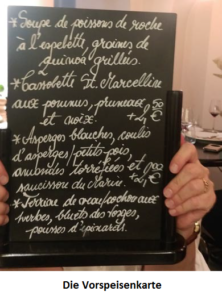 * Soupe de poissons de roche
à l'espelette, graines de
quinoa grillées.
* Cassolette St. Marcelline
aux pommes, pruneaux
et noix. +2,50 €
* Asperges blanches, coulis
d'asperges/petits pois,
torréfiées et
saucisson du +2,00 €
* Terrine de aux
herbes, bluets des Vosges,
pousses d'épinards.
Die Vorspeisenkarte